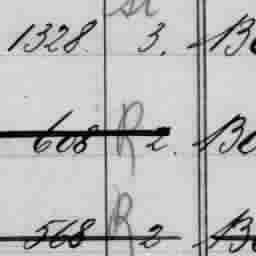 1328 3.
608 R 2.
568 R 2